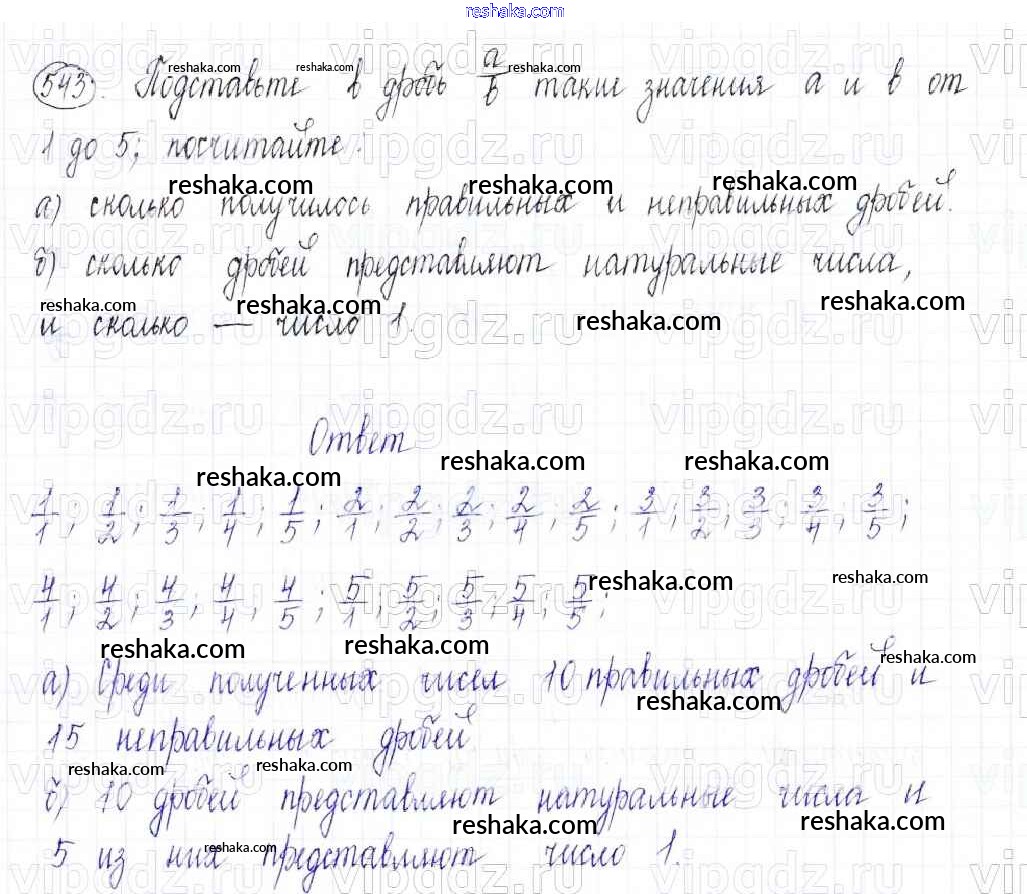 reshaka.com
543. Подставьте в дробь a/b такие значения a и b от
1 до 5; посчитайте:
а) сколько получилось правильных и неправильных дробей.
б) сколько дробей представляют натуральные числа,
и сколько — число 1.
Ответ
1/1; 1/2; 1/3; 1/4; 1/5; 2/1; 2/2; 2/3; 2/4; 2/5; 3/1; 3/2; 3/3; 3/4; 3/5;
4/1; 4/2; 4/3; 4/4; 4/5; 5/1; 5/2; 5/3; 5/4; 5/5;
а) Среди полученных чисел 10 правильных дробей и
15 неправильных дробей
б) 10 дробей представляют натуральные числа и
5 из них представляют число 1.